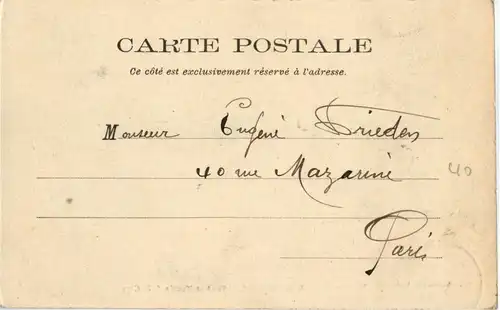 CARTE POSTALE
Ce côté est exclusivement réservé à l'adresse.
Monsieur Eugène Drieden
40 rue Mazarine
40
Paris